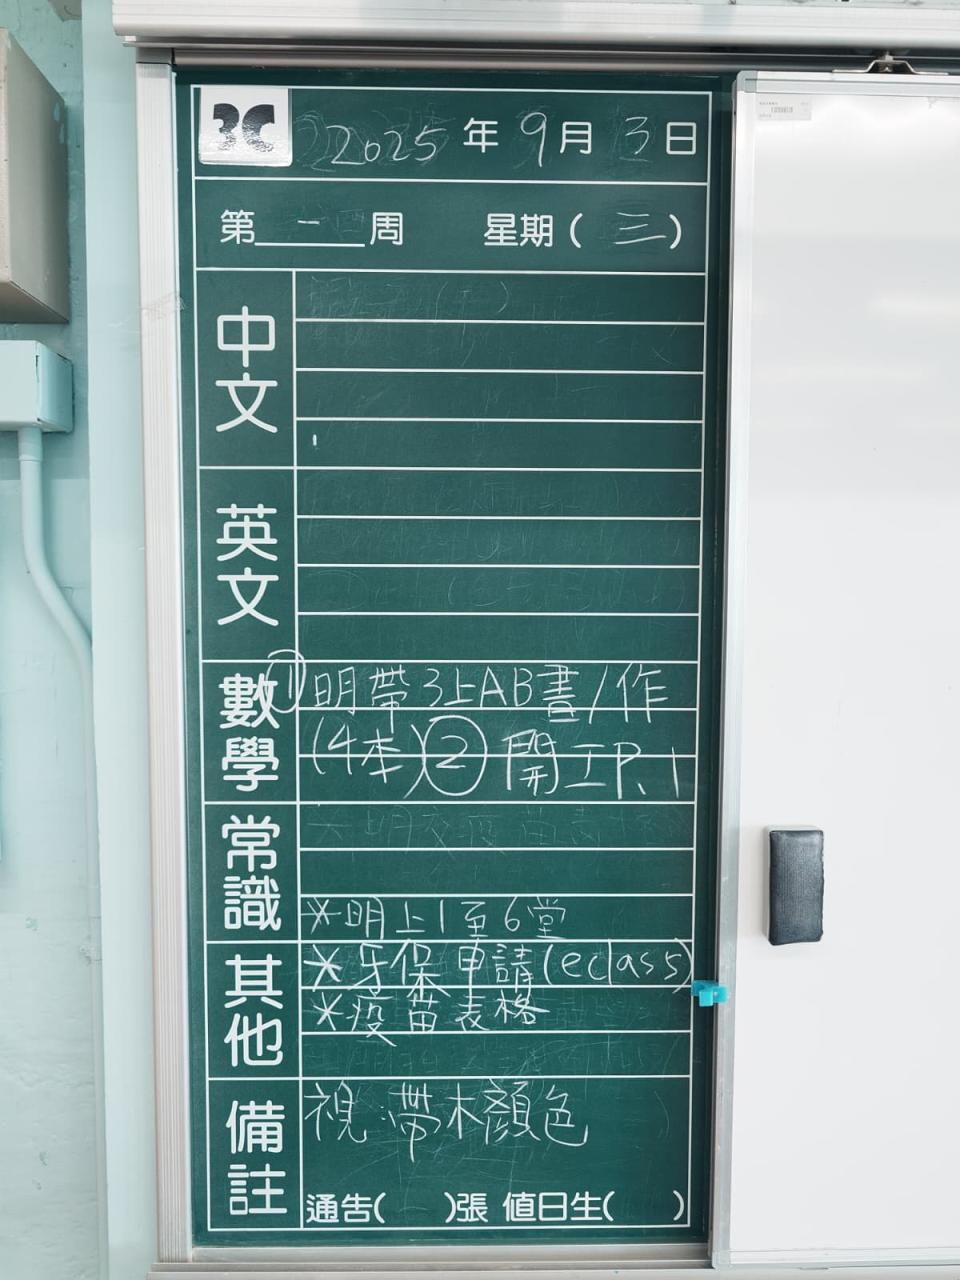 3C 2025年9月3日
第一周 星期(三)
中文
英文
數學
①明帶3上AB書/作
(4本)②開工P.1
常識
*明上1至6堂
其他
*牙保申請(eclass)
*疫苗表格
備註
視:帶木顏色
通告( )張 值日生( )